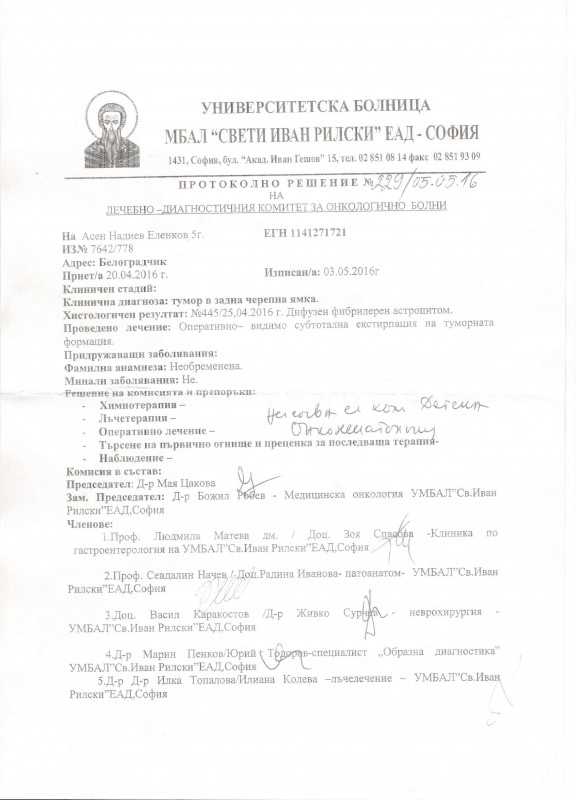 УНИВЕРСИТЕТСКА БОЛНИЦА
МБАЛ “СВЕТИ ИВАН РИЛСКИ” ЕАД - СОФИЯ
1431, София, бул. “Акад. Иван Гешов” 15, тел. 02 851 08 14 факс 02 851 93 09
ПРОТОКОЛНО РЕШЕНИЕ № 229/05.05.16
НА
ЛЕЧЕБНО –ДИАГНОСТИЧНИЯ КОМИТЕТ ЗА ОНКОЛОГИЧНО БОЛНИ
На Асен Надиев Еленков 5г. ЕГН 1141271721
ИЗ№ 7642/778
Адрес: Белоградчик
Приет/а 20.04.2016 г. Изписан/а: 03.05.2016г
Клиничен стадий:
Клинична диагноза: тумор в задна черепна ямка.
Хистологичен резултат: №445/25,04.2016 г. Дифузен фибрилерен астроцитом.
Проведено лечение: Оперативно– видимо субтотална екстирпация на туморната
формация.
Придружаващи заболявания:
Фамилна анамнеза: Необременена.
Минали заболявания: Не.
Решение на комисията и препоръки:
- Химиотерапия –
- Лъчетерапия –
- Оперативно лечение –
- Търсене на първично огнище и преценка за последваща терапия-
- Наблюдение –
Насочва се към Детска
Онкохематология
Комисия в състав:
Председател: Д-р Мая Цакова
Зам. Председател: Д-р Божил Робев - Медицинска онкология УМБАЛ”Св.Иван
Рилски”ЕАД,София
Членове:
1.Проф. Людмила Матева дм. / Доц. Зоя Спасова -Клиника по
гастроентерология на УМБАЛ”Св.Иван Рилски”ЕАД,София
2.Проф. Севдалин Начев / Доц.Радина Иванова- патоанатом- УМБАЛ”Св.Иван
Рилски”ЕАД,София
3.Доц. Васил Каракостов /Д-р Живко Сурчев - неврохирургия -
УМБАЛ”Св.Иван Рилски”ЕАД,София
4.Д-р Марин Пенков/Юрий Тодоров-специалист „Образна диагностика”
УМБАЛ”Св.Иван Рилски”ЕАД,София
5.Д-р Д-р Илка Топалова/Илиана Колева –лъчелечение – УМБАЛ”Св.Иван
Рилски”ЕАД,София